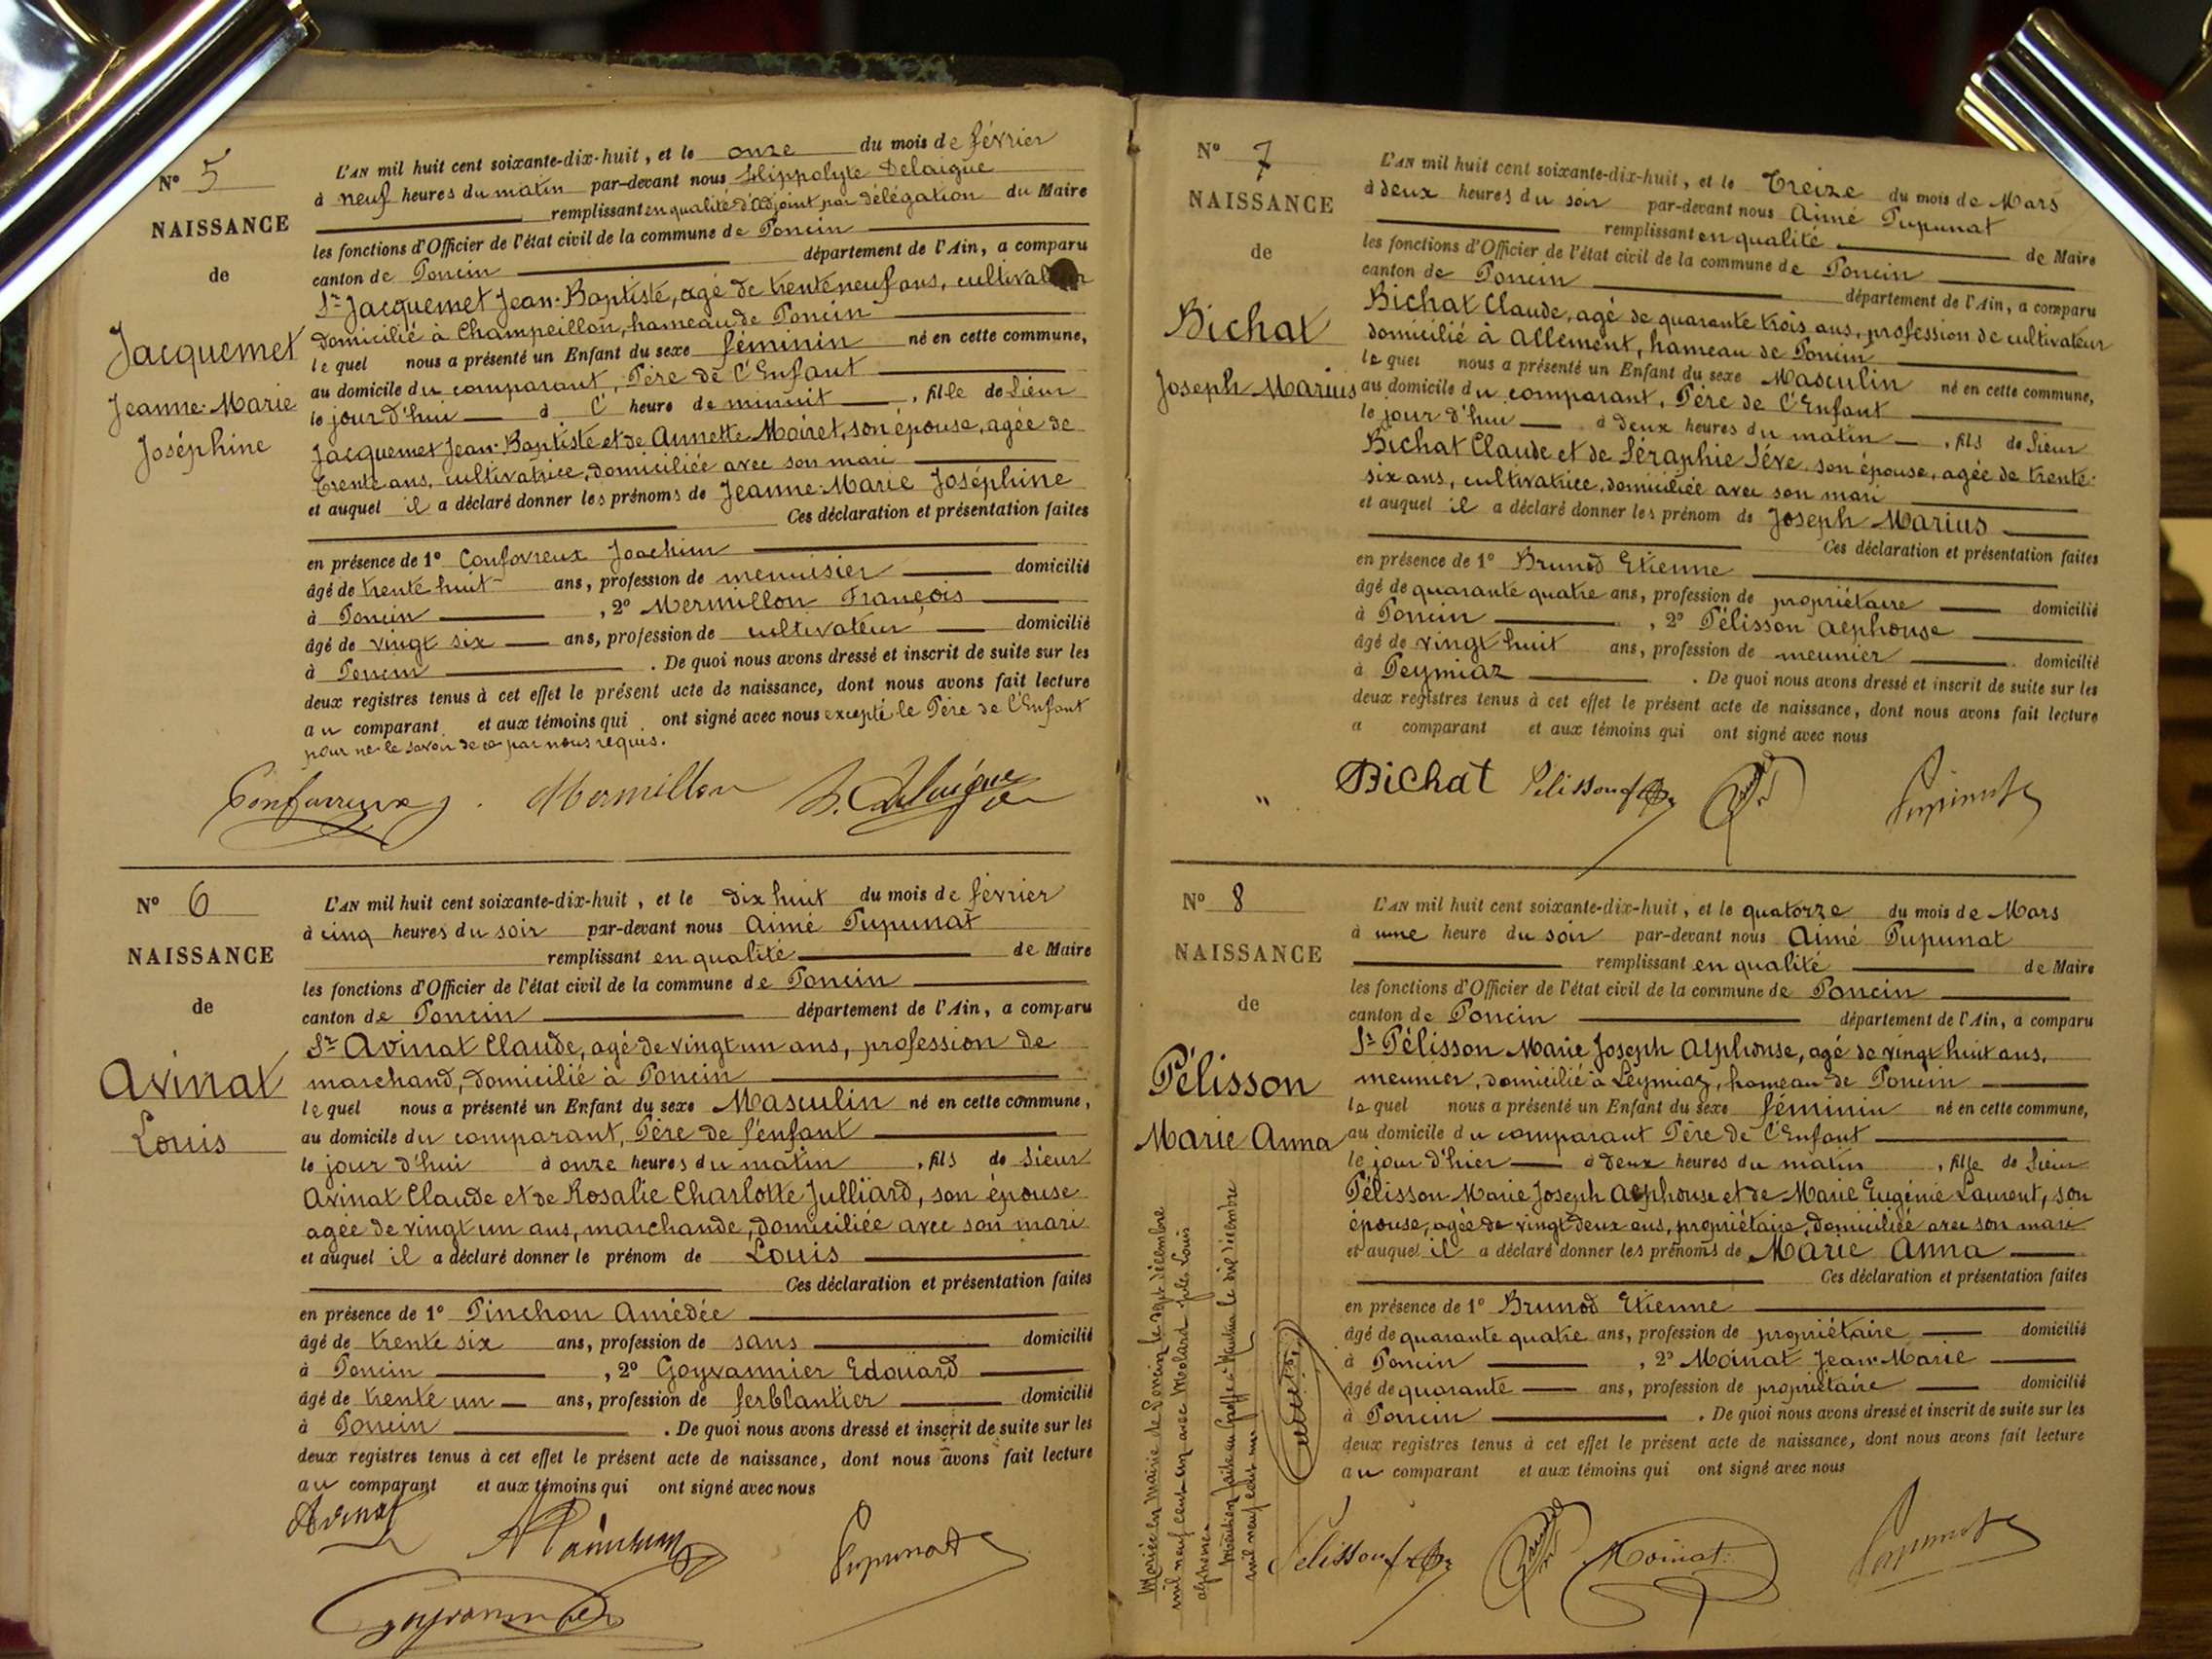 N° 5
NAISSANCE
de
Jacquemet
Jeanne-Marie
Joséphine
L'AN mil huit cent soixante-dix-huit, et le onze du mois de février
à neuf heures du matin par-devant nous Hippolyte Delaigue
remplissant en qualité d'adjoint par délégation du Maire
les fonctions d'Officier de l'état civil de la commune de Poncin
canton de Poncin département de l'Ain, a comparu
Sr Jacquemet Jean-Baptiste, agé de trente neuf ans, cultivateur
domicilié à Champeillon, hameau de Poncin
le quel nous a présenté un Enfant du sexe féminin né en cette commune,
au domicile du comparant, Père de l'Enfant
le jour d'hui à l' heure de minuit, fille de Sieur
Jacquemet Jean-Baptiste et de Annette Moiret, son épouse, agée de
trente ans, cultivatrice, domiciliée avec son mari
et auquel il a déclaré donner les prénoms de Jeanne-Marie Joséphine
Ces déclaration et présentation faites
en présence de 1° Confavreux Joachim
âgé de trente huit ans, profession de menuisier domicilié
à Poncin, 2° Mermillon François
âgé de vingt six ans, profession de cultivateur domicilié
à Poncin. De quoi nous avons dressé et inscrit de suite sur les
deux registres tenus à cet effet le présent acte de naissance, dont nous avons fait lecture
au comparant et aux témoins qui ont signé avec nous excepté le Père de l'Enfant
pour ne le savoir de ce par nous requis.
Confavreux J. Mermillon H. Delaigue
N° 6
NAISSANCE
de
Avinat
Louis
L'AN mil huit cent soixante-dix-huit, et le dix huit du mois de février
à cinq heures du soir par-devant nous Aimé Pupunat
remplissant en qualité de Maire
les fonctions d'Officier de l'état civil de la commune de Poncin
canton de Poncin département de l'Ain, a comparu
Sr Avinat Claude, agé de vingt un ans, profession de
marchand, domicilié à Poncin
le quel nous a présenté un Enfant du sexe Masculin né en cette commune,
au domicile du comparant, Père de l'enfant
le jour d'hui à onze heures du matin, fils de Sieur
Avinat Claude et de Rosalie Charlotte Julliard, son épouse
agée de vingt un ans, marchande, domiciliée avec son mari
et auquel il a déclaré donner le prénom de Louis
Ces déclaration et présentation faites
en présence de 1° Pinchon Amédée
âgé de trente six ans, profession de sans domicilié
à Poncin, 2° Goyvannier Edouard
âgé de trente un ans, profession de ferblantier domicilié
à Poncin. De quoi nous avons dressé et inscrit de suite sur les
deux registres tenus à cet effet le présent acte de naissance, dont nous avons fait lecture
au comparant et aux témoins qui ont signé avec nous
Avinat Pupunat
Goyvannier
N° 7
NAISSANCE
de
Bichat
Joseph-Marius
L'AN mil huit cent soixante-dix-huit, et le Treize du mois de Mars
à deux heures du soir par-devant nous Aimé Pupunat
remplissant en qualité de Maire
les fonctions d'Officier de l'état civil de la commune de Poncin
canton de Poncin département de l'Ain, a comparu
Bichat Claude, agé de quarante trois ans, profession de cultivateur
domicilié à Allement, hameau de Poncin
le quel nous a présenté un Enfant du sexe Masculin né en cette commune,
au domicile du comparant, Père de l'Enfant
le jour d'hui à deux heures du matin, fils de Sieur
Bichat Claude et de Séraphie Sève son épouse, agée de trente-
six ans, cultivatrice, domiciliée avec son mari
et auquel il a déclaré donner les prénom de Joseph Marius
Ces déclaration et présentation faites
en présence de 1° Brunod Etienne
âgé de quarante quatre ans, profession de propriétaire domicilié
à Poncin, 2° Pélisson Alphonse
âgé de vingt huit ans, profession de meunier domicilié
à Peymiaz. De quoi nous avons dressé et inscrit de suite sur les
deux registres tenus à cet effet le présent acte de naissance, dont nous avons fait lecture
a comparant et aux témoins qui ont signé avec nous
" Bichat Pélisson Pupunat
N° 8
NAISSANCE
de
Pélisson
Marie Anna
L'AN mil huit cent soixante-dix-huit, et le quatorze du mois de Mars
à une heure du soir par-devant nous Aimé Pupunat
remplissant en qualité de Maire
les fonctions d'Officier de l'état civil de la commune de Poncin
canton de Poncin département de l'Ain, a comparu
Sr Pélisson Marie Joseph Alphonse, agé de vingt huit ans,
meunier, domicilié à Leymiaz, hameau de Poncin
le quel nous a présenté un Enfant du sexe féminin né en cette commune,
au domicile du comparant Père de l'Enfant
le jour d'hier à deux heures du matin, fille de Sieur
Pélisson Marie Joseph Alphonse et de Marie Eugénie Laurent, son
épouse, agée de vingt deux ans, propriétaire, domiciliée avec son mari
et auquel il a déclaré donner les prénoms de Marie Anna
Ces déclaration et présentation faites
en présence de 1° Brunod Etienne
âgé de quarante quatre ans, profession de propriétaire domicilié
à Poncin, 2° Moinat Jean-Marie
âgé de quarante ans, profession de propriétaire domicilié
à Poncin. De quoi nous avons dressé et inscrit de suite sur les
deux registres tenus à cet effet le présent acte de naissance, dont nous avons fait lecture
au comparant et aux témoins qui ont signé avec nous
Pélisson Moinat Pupunat
Mariée en Mairie de Poncin le sept décembre
mil neuf cent un avec Molard Jules Louis
alphonse.
Mention faite au Greffe de Nantua le dix décembre
mil neuf cent un.